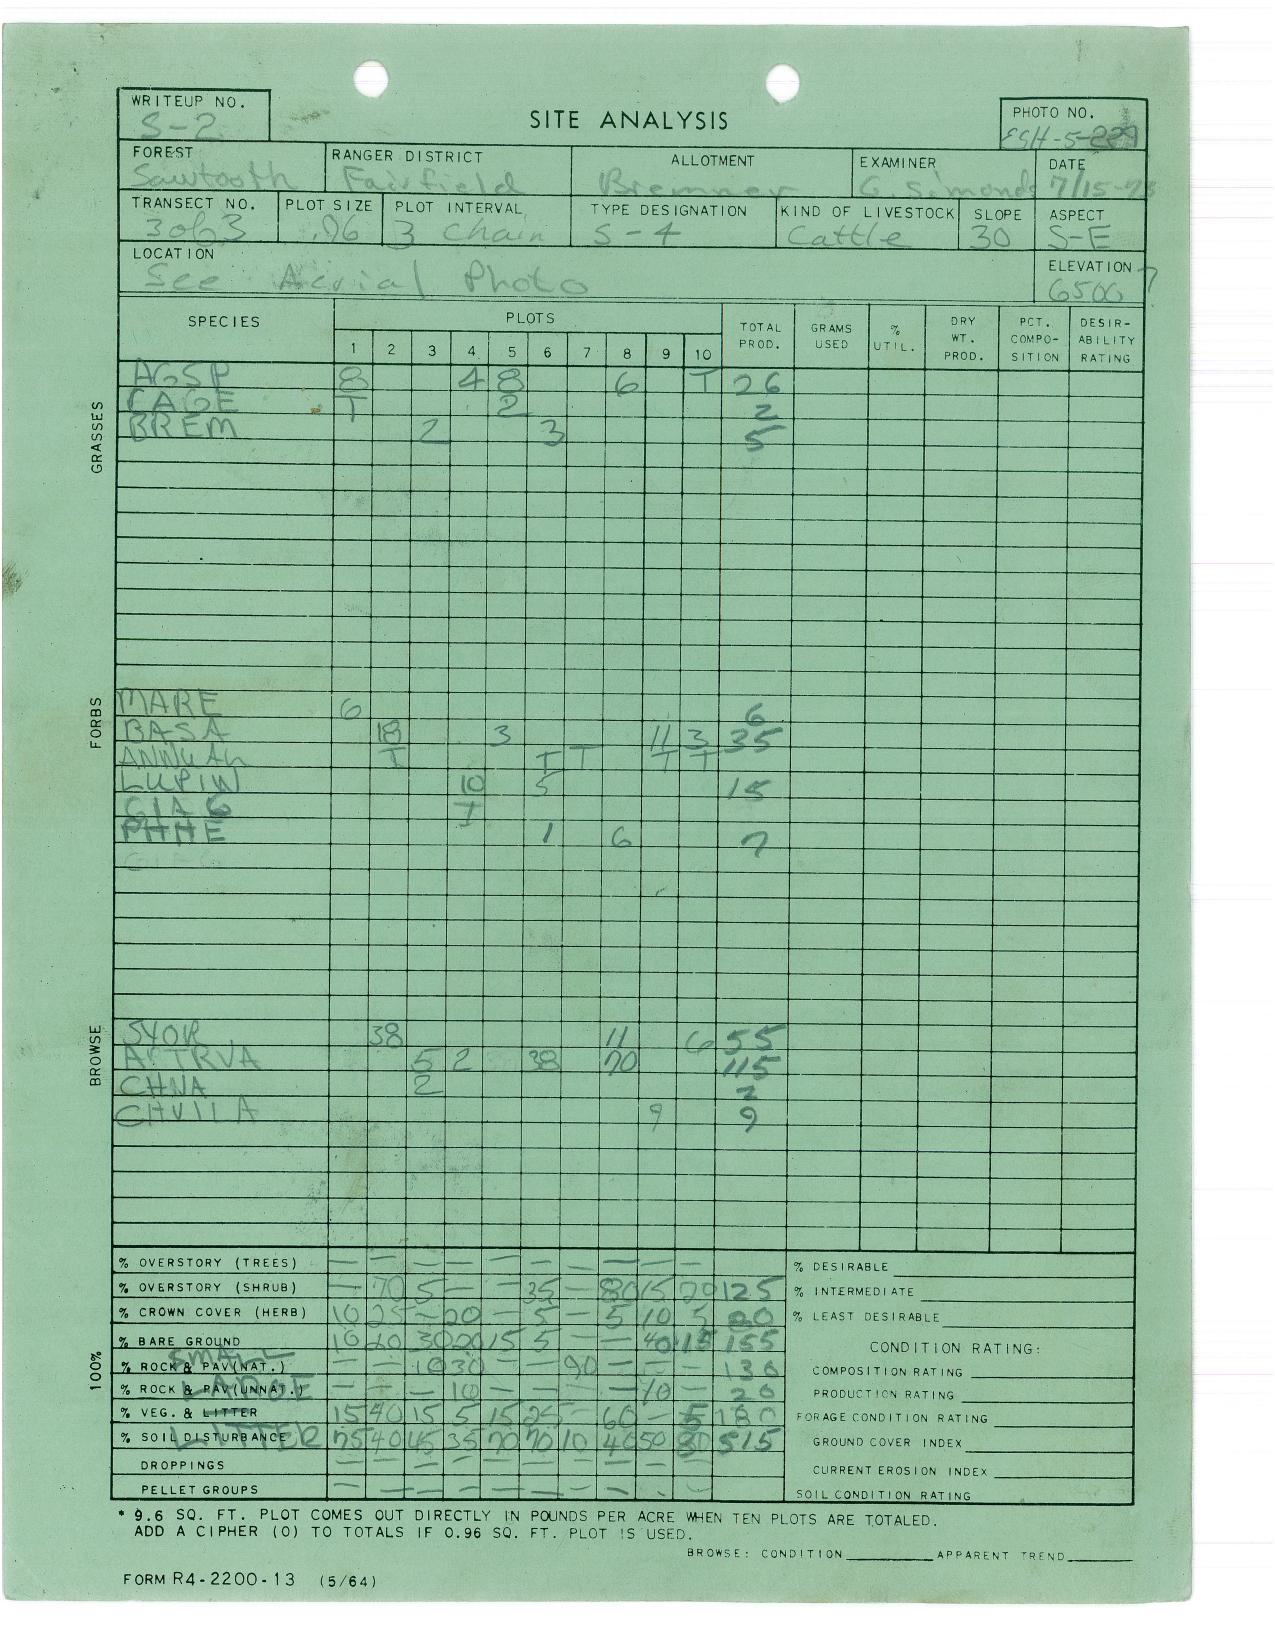 WRITEUP NO.
S-2
SITE ANALYSIS
PHOTO NO.
ESH-5-229
FOREST RANGER DISTRICT ALLOTMENT EXAMINER DATE
Sawtooth Fairfield Bremner G. Simonds 7/15-73
TRANSECT NO. PLOT SIZE PLOT INTERVAL TYPE DESIGNATION KIND OF LIVESTOCK SLOPE ASPECT
3 of 3 .96 3 chain S-4 Cattle 30 S-E
LOCATION ELEVATION
See Aerial Photo 6500
SPECIES PLOTS TOTAL PROD. GRAMS USED % UTIL. DRY WT. PROD. PCT. COMPOSITION DESIRABILITY RATING
1 2 3 4 5 6 7 8 9 10
GRASSES
AGSP 8 4 8 6 T 26
CAGE T 2 2
BREM 2 3 5
FORBS
MARE 6 6
BASA 18 3 11 3 35
ANNUAL T T T T T
LUPIN 10 5 15
GIAG T
PHHE 1 6 7
BROWSE
SYOR 38 11 6 55
ARTRVA 5 2 38 70 115
CHNA 2 2
CHVILA 9 9
% OVERSTORY (TREES) — — — — — — — — — —
% OVERSTORY (SHRUB) — 70 5 — — 35 — 80 15 20 125
% CROWN COVER (HERB) 10 25 — 20 — 5 — 5 10 5 80
% BARE GROUND 10 20 30 20 15 5 — — 40 15 155
100%
SMALL
% ROCK & PAV(NAT.) — — 10 30 — — 90 — — — 130
% ROCK & PAV(UNNAT.) LARGE — — — 10 — — — — 10 — 20
% VEG. & LITTER 15 40 15 5 15 25 — 60 — 5 180
% SOIL DISTURBANCE LITTER 75 40 45 35 70 70 10 40 50 80 515
DROPPINGS — — — — — — — — —
PELLET GROUPS — — — — — — — — — —
% DESIRABLE
% INTERMEDIATE
% LEAST DESIRABLE
CONDITION RATING:
COMPOSITION RATING
PRODUCTION RATING
FORAGE CONDITION RATING
GROUND COVER INDEX
CURRENT EROSION INDEX
SOIL CONDITION RATING
* 9.6 SQ. FT. PLOT COMES OUT DIRECTLY IN POUNDS PER ACRE WHEN TEN PLOTS ARE TOTALED.
ADD A CIPHER (0) TO TOTALS IF 0.96 SQ. FT. PLOT IS USED.
BROWSE: CONDITION APPARENT TREND
FORM R4-2200-13 (5/64)